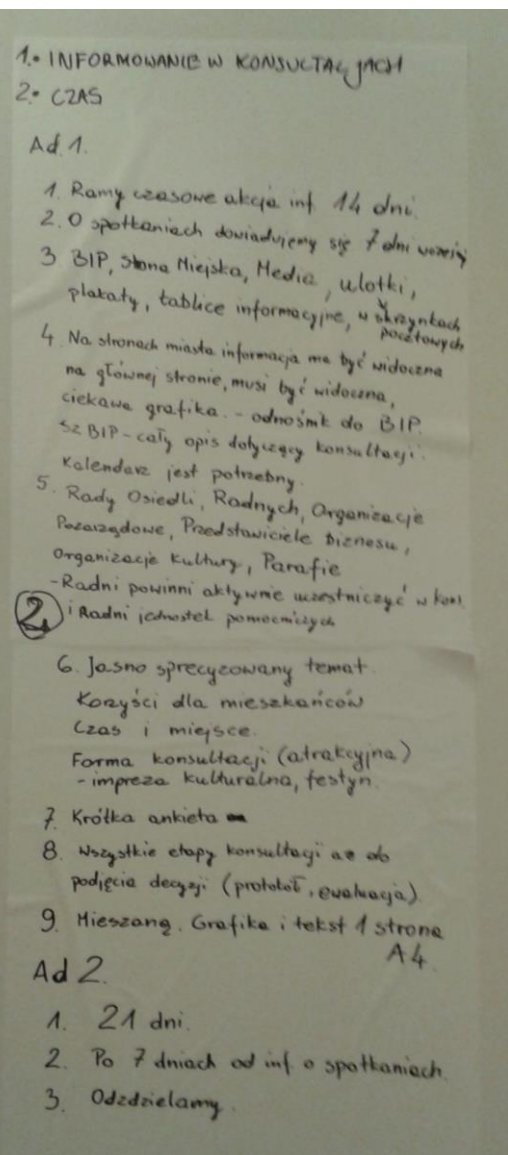 1. INFORMOWANIE W KONSULTACJACH
2. CZAS
Ad. 1.
1. Ramy czasowe akcja inf. 14 dni.
2. O spotkaniach dowiadujemy się 7 dni wcześniej
3 BIP, Stona Miejska, Media, ulotki,
plakaty, tablice informacyjne, w skrzynkach
pocztowych
4. Na stronach miasta informacja ma być widoczna
na głównej stronie, musi być widoczna,
ciekawa grafika. - odnośnik do BIP.
BIP - cały opis dotyczący konsultacji.
Kalendarz jest potrzebny.
5. Rady Osiedli, Radnych, Organizacje
Pozarządowe, Przedstawiciele Biznesu,
Organizacje Kultury, Parafie
- Radni powinni aktywnie uczestniczyć w kons.
2 i Radni jednostek pomocniczych
6. Jasno sprecyzowany temat.
Korzyści dla mieszkańców
Czas i miejsce.
Forma konsultacji (atrakcyjna)
- impreza kulturalna, festyn.
7. Krótka ankieta
8. Wszystkie etapy konsultacji aż do
podjęcia decyzji (protokół, ewaluacja)
9. Mieszaną. Grafika i tekst 1 strona
A4.
Ad 2.
1. 21 dni.
2. Po 7 dniach od inf. o spotkaniach.
3. Odzdzielamy.